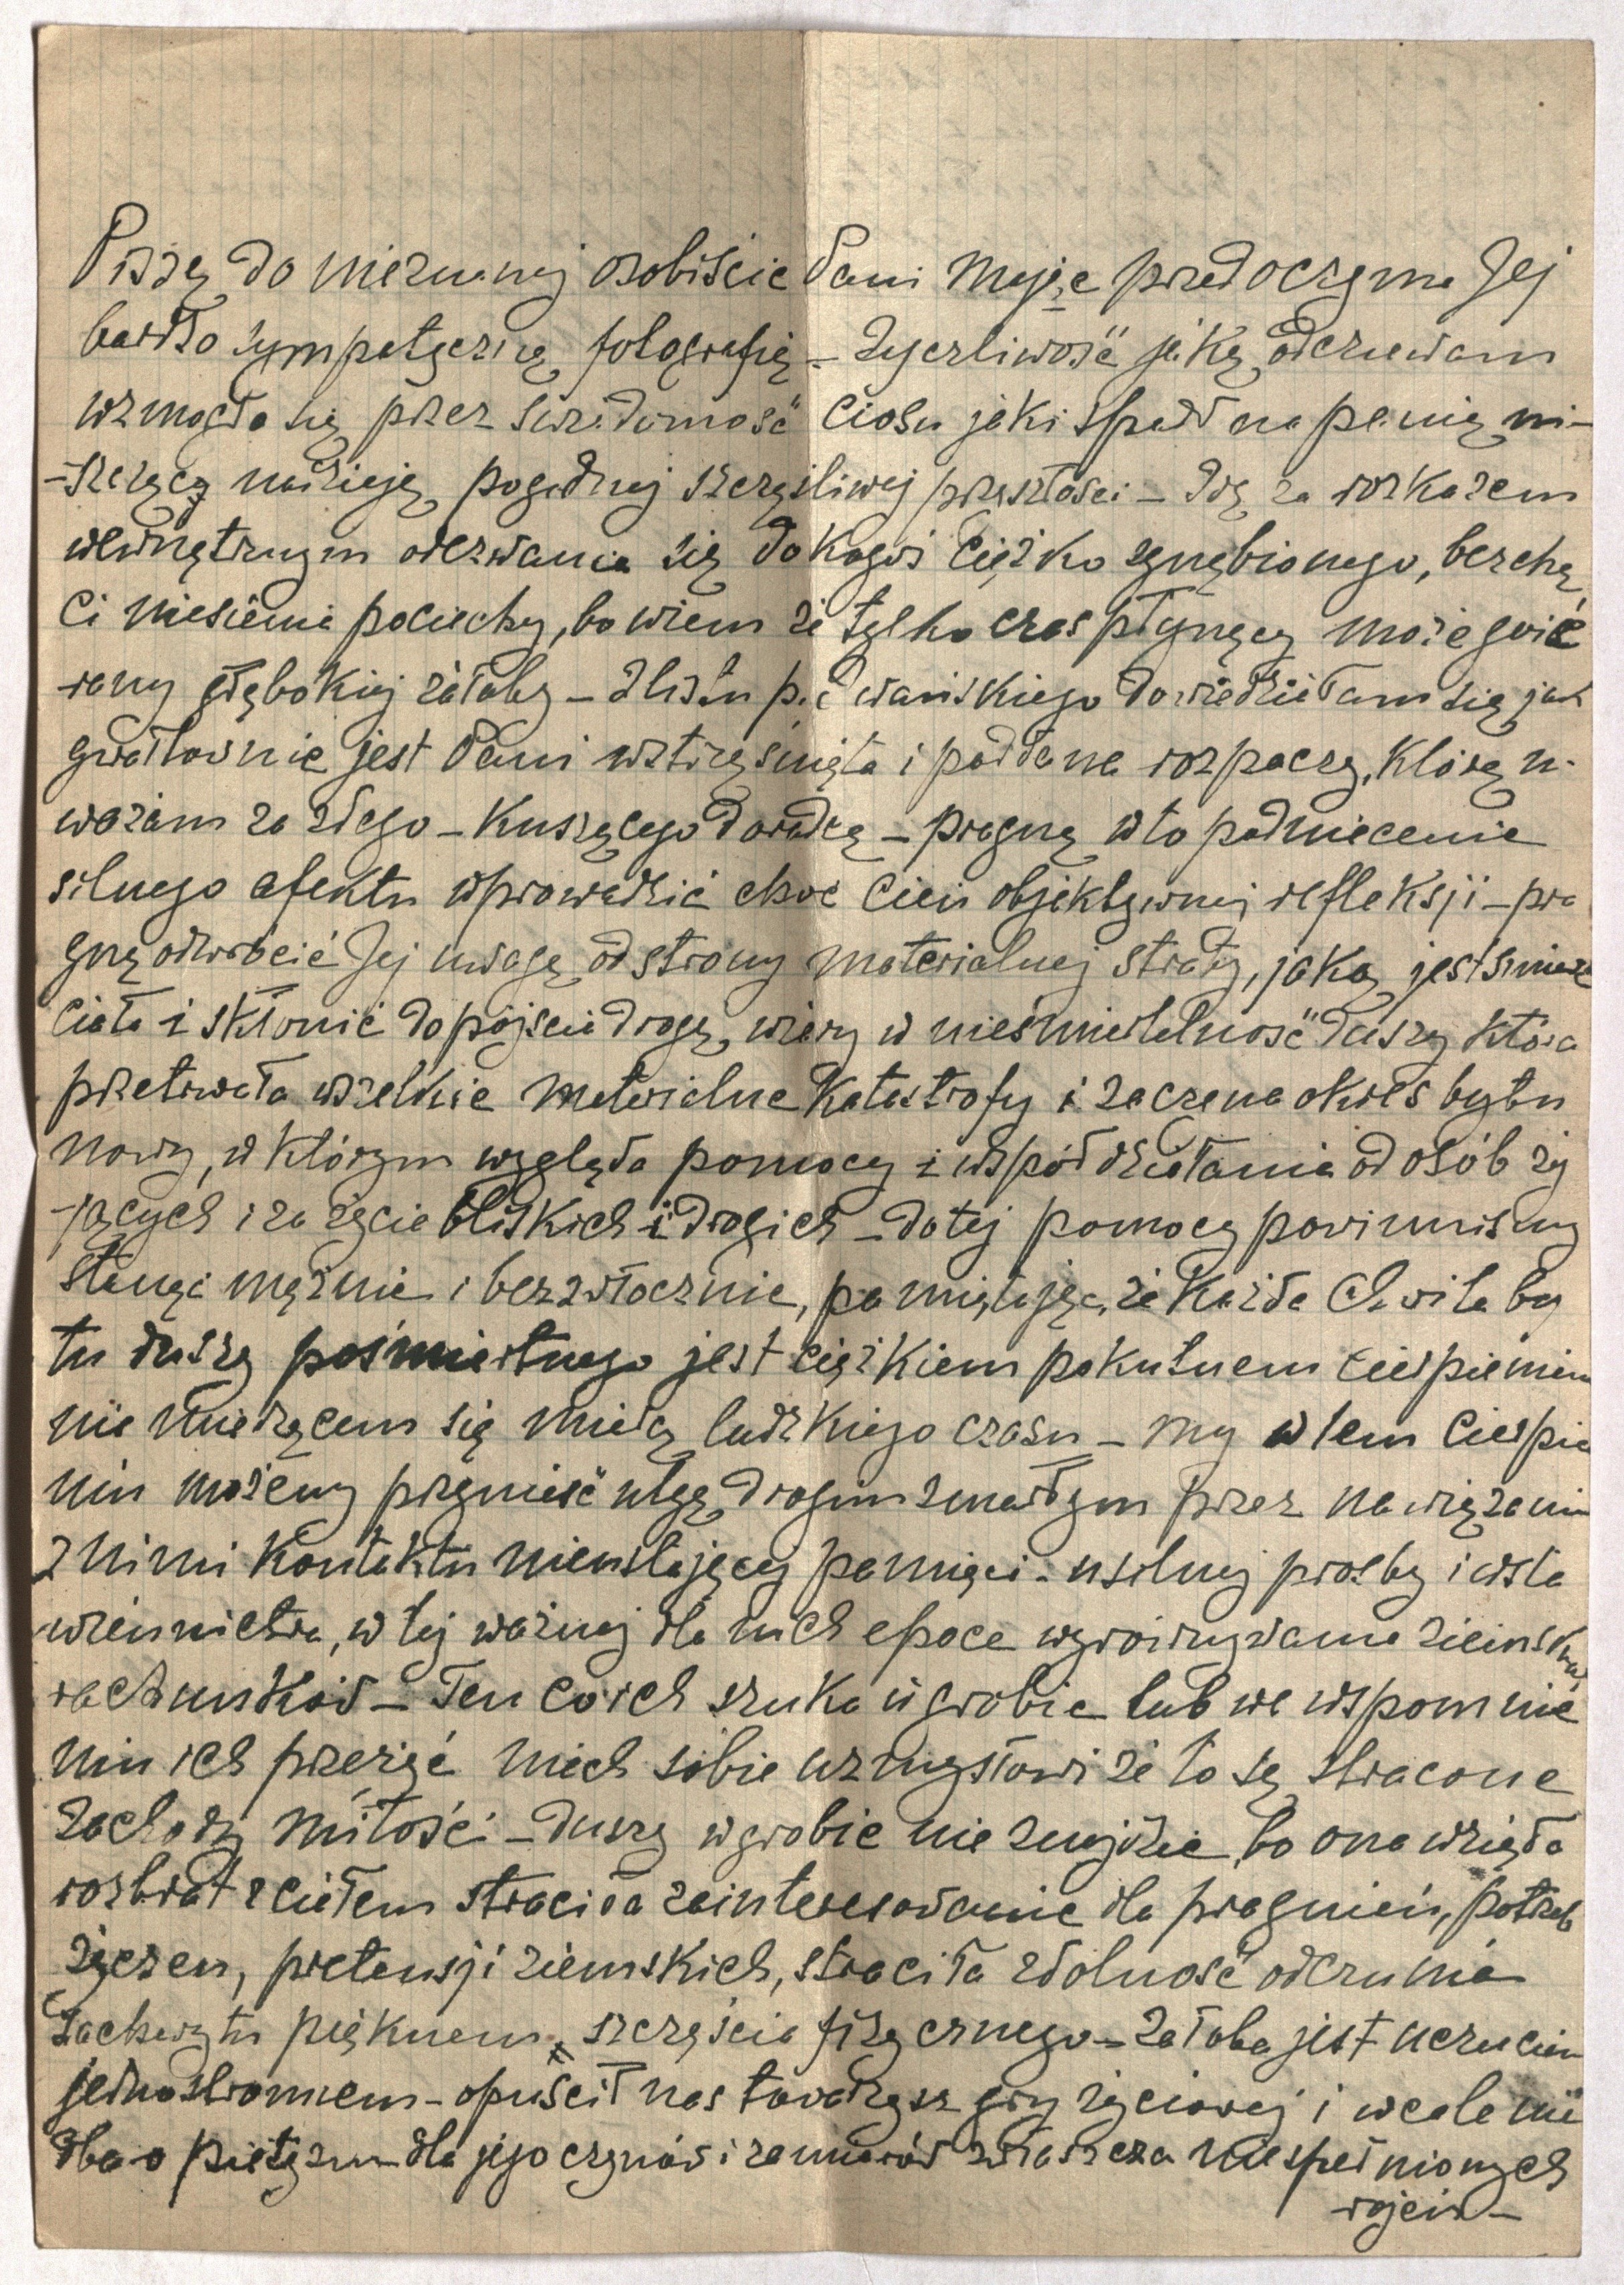 Piszę do nieznanej osobiście Pani mając przed oczyma Jej
bardzo sympatyczną fotografię – życzliwość jaką odczuwam
wzmogła się przez świadomość ciosu jaki spadł na panią ni-
-szcząc nadzieję pogodnej szczęśliwej przyszłości – Idę za rozkazem
wewnętrznym odezwania się do kogoś ciężko zgnębionego, bez chę
ci niesienia pociechy, bo wiem że tylko czas płynący może goić
rany głębokiej żałoby – Z listu p. dowiedziałam się jak
gwałtownie jest Pani wstrząśnięta i poddana rozpaczy, którą u-
ważam za złego – kuszącego doradcę – pragnę w to podniecenie
silnego afektu wprowadzić choć cień objektywnej refleksji – pra
gnę odwrócić Jej uwagę od strony materialnej straty, jaką jest śmierć
ciała i skłonić do pójścia drogą wiary w nieśmiertelność duszy która
przetrwała wszelkie materialne katastrofy i zaczyna okres bytu
nowy, w którym wygląda pomocy i współdziałania od osób ży
-jących i za życie bliskich i drogich – do tej pomocy powinniśmy
stanąć mężnie i bezzwłocznie, pamiętając, że każda chwila by
tu duszy pośmiertnego jest ciężkiem pokutnem cierpieniem
nie mierzącem się miarą ludzkiego czasu – my w tem cierpie
niu możemy przynieść ulgę drogim zmarłym przez nawiązanie
z nimi kontaktu nieustającej pamięci – usilnej prośby i wsta
wiennictwa, w tej ważnej dla nich epoce wyrównywania ziemskich
rachunków – Ten co ich szuka w grobie lub we wspomnie
niu ich przeżyć niech sobie uzmysłowi że to są stracone
zachody miłości – duszy w grobie nie znajdzie, bo ona wzięła
rozbrat z ciałem straciła zainteresowanie dla pragnień, potrzeb
życzeń, pretensji ziemskich, straciła zdolność odczuwania
zachwytu pięknem, szczęścia fizycznego – żałoba jest uczuciem
jednostronnem – opuścił nas towarzysz gry życiowej i wcale nie
dba o pietyzm dla jego czynów i zamiarów zwłaszcza niespełnionych
rojeń –